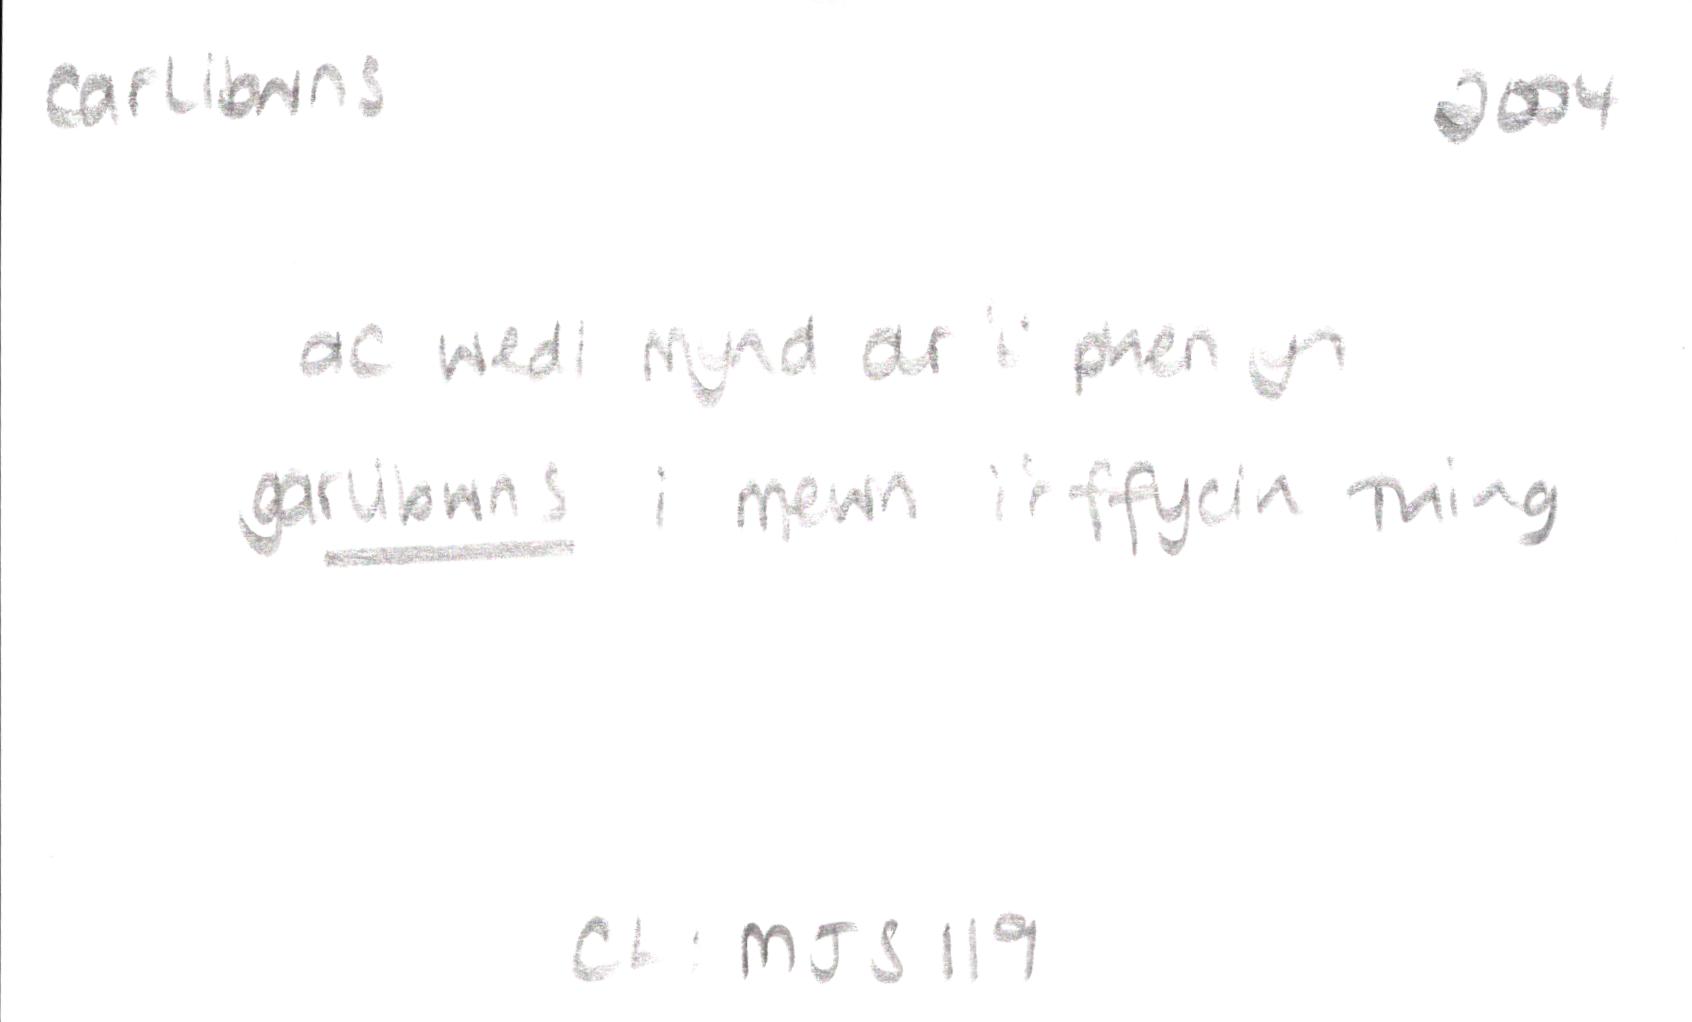 carlibwns 2004
ac wedi mynd ar i' phen yn
garlibwns i mewn i'r ffycin thing
CL: MJS 119